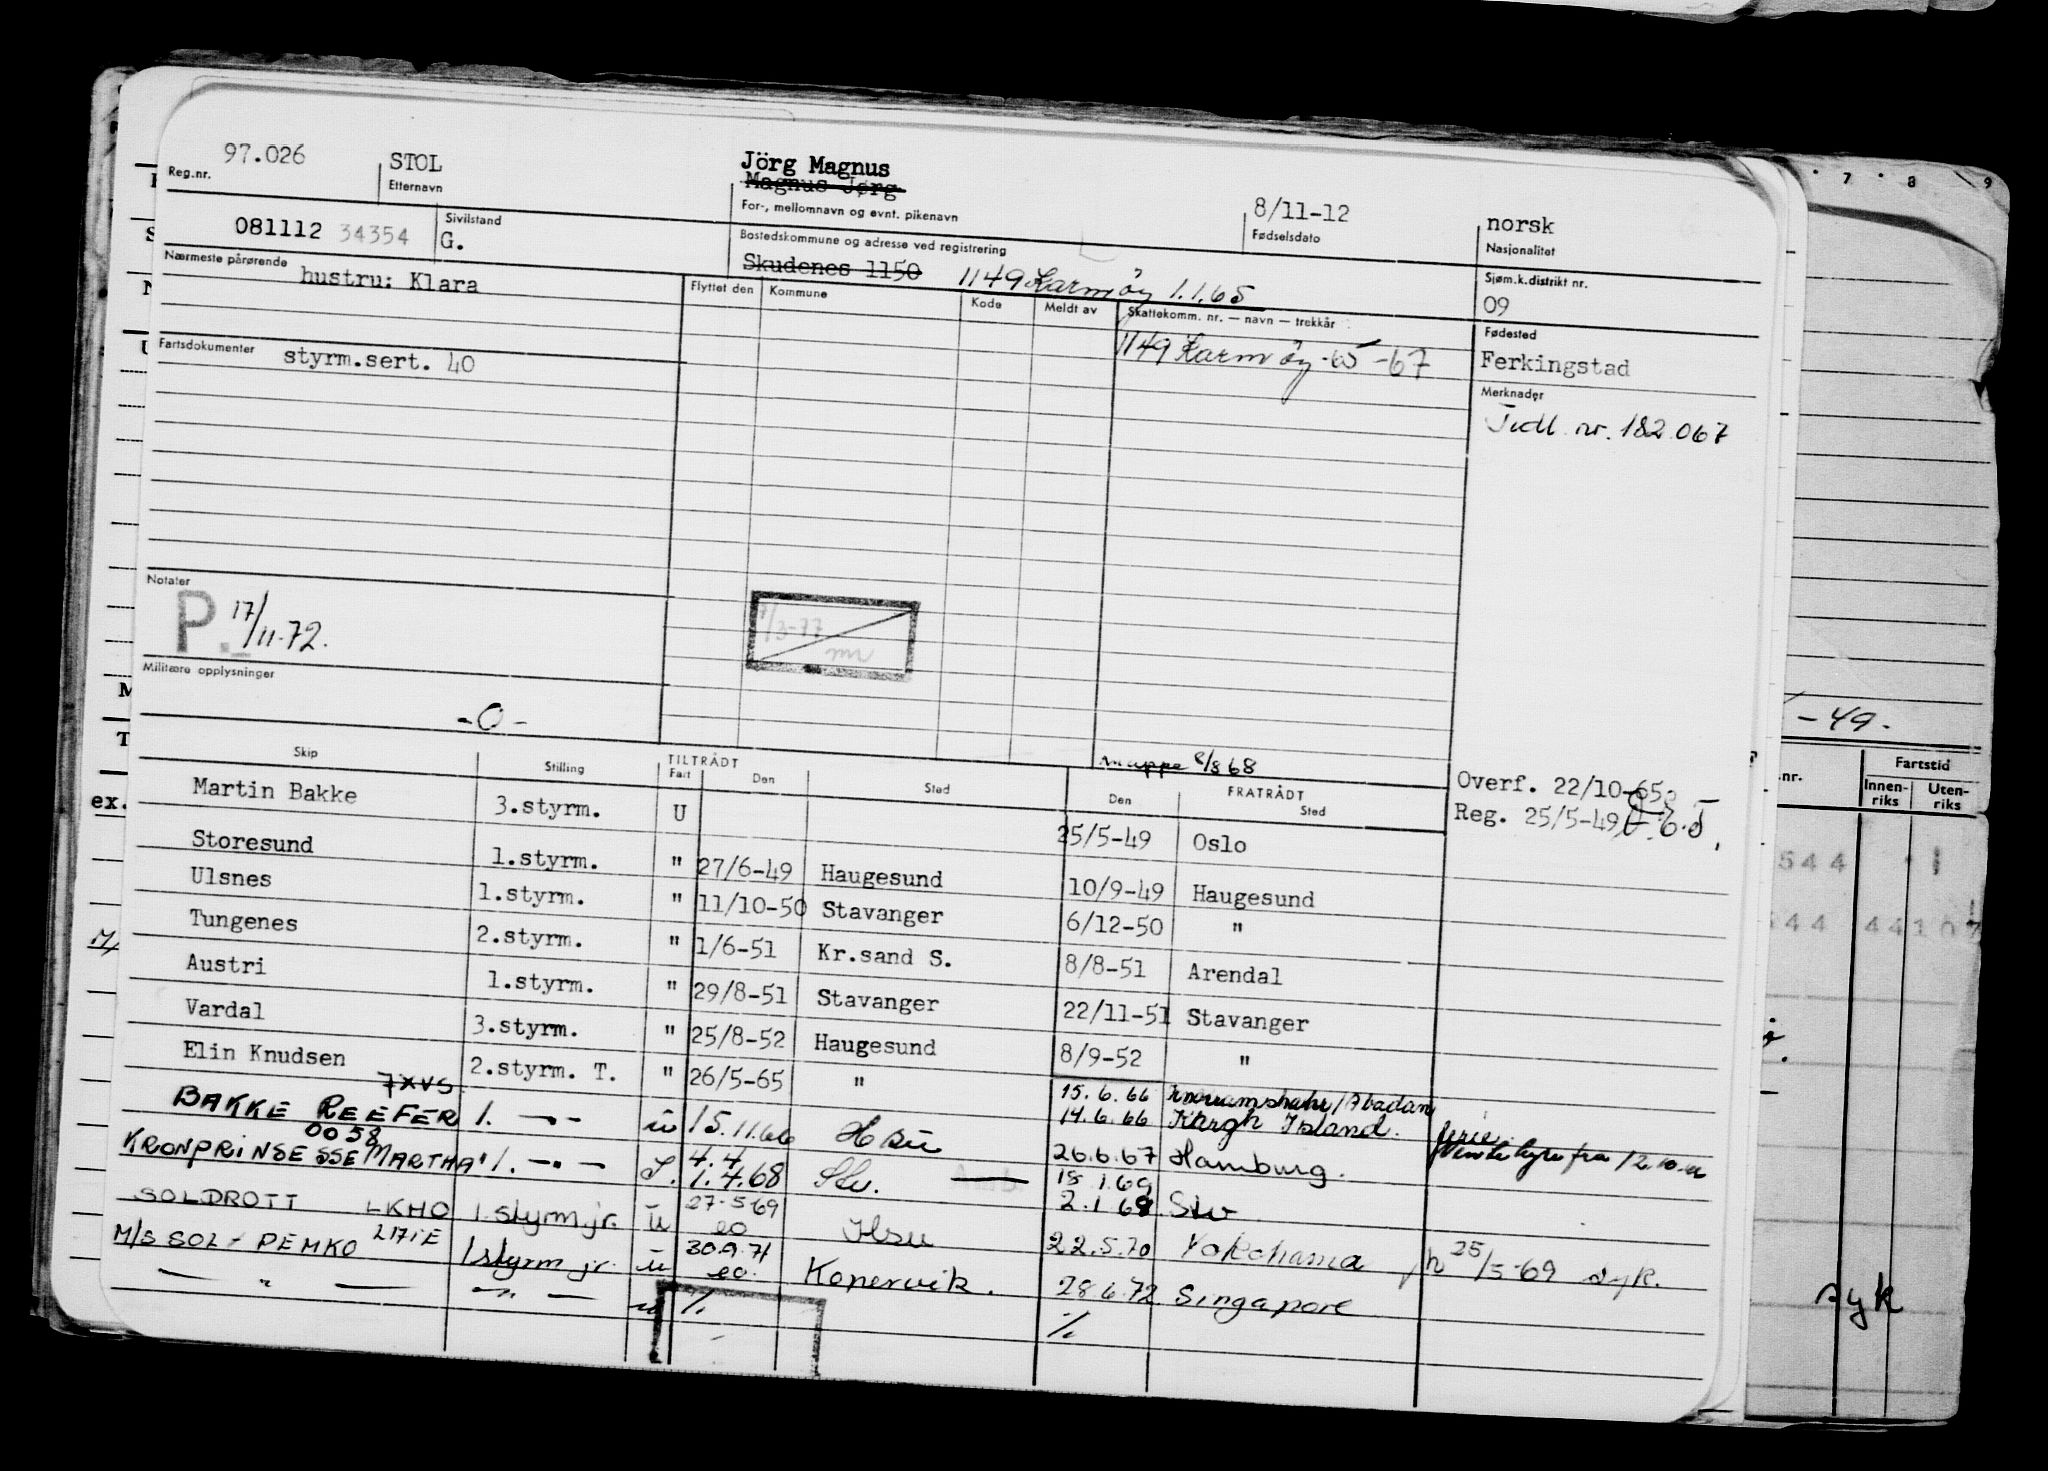 97.026 STOL Jörg Magnus
Magnus Jørg
Reg.nr. Etternavn For-, mellomnavn og evnt. pikenavn 8/11-12 Fødselsdato norsk Nasjonalitet
081112 34354 Sivilstand G. Bostedskommune og adresse ved registrering
Skudenes 1150 1149 Karmöy 1.1.65
Sjøm.k.distrikt nr. 09
Nærmeste pårørende hustru: Klara
Flyttet den Kommune Kode Meldt av Skattekomm. nr. — navn — trekkår
1149 Karmöy -65 -67
Fødested
Ferkingstad
Fartsdokumenter styrm.sert. 40
Merknader
Tidl. nr. 182.067
Notater
P. 17/11-72.
7/3-77
mr
Militære opplysninger
-0-
Mappe 8/8 68
Overf. 22/10-65
Reg. 25/5-49
Skip Stilling TILTRÅDT Fart Den Sted FRATRÅDT Den Sted
Martin Bakke 3.styrm. U 25/5-49 Oslo
Storesund 1.styrm. " 27/6-49 Haugesund 10/9-49 Haugesund
Ulsnes 1.styrm. " 11/10-50 Stavanger 6/12-50 "
Tungenes 2.styrm. " 1/6-51 Kr.sand S. 8/8-51 Arendal
Austri 1.styrm. " 29/8-51 Stavanger 22/11-51 Stavanger
Vardal 3.styrm. " 25/8-52 Haugesund 8/9-52 "
Elin Knudsen 2.styrm. T. " 26/5-65 " 15.6.66 /Abadan
14.6.66 Khargh Island.
7XVS
BAKKE REEFER 1. -"- u 15.11.66 Hsu 26.6.67 Hamburg.
0058
KRONPRINSESSE MARTHA 1. -"- 4.4 1.4.68 Slv. 18.1.69 2.1 69 Slv
SOLDROTT LKHO 1.styrm.jr. u 27.5-69 eo Hsu 22.5.70 Yokohama 25/5-69 syk.
M/S SOL-PEMKO 1styrm jr. u 30.9.71 eo. Kopervik. 28.6.72 Singapore
— " — — " — u % %
7 8 9
-49.
nr. Fartstid
Innenriks Utenriks
544 1
544 44107
syk
ex.